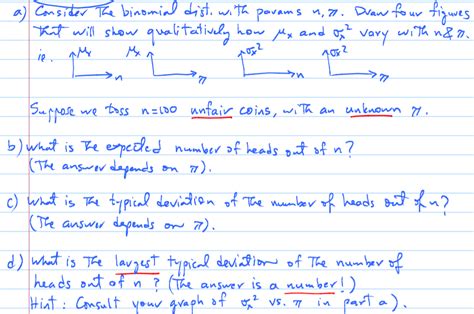 a) Consider the binomial dist. with params n, π. Draw four figures
that will show qualitatively how μx and σx² vary with n & π.
ie. μx n μx π σx² n σx² π
Suppose we toss n=100 unfair coins, with an unknown π.
b) what is the expected number of heads out of n?
(The answer depends on π).
c) what is the typical deviation of the number of heads out of n?
(The answer depends on π).
d) what is the largest typical deviation of the number of
heads out of n? (The answer is a number!)
Hint: Consult your graph of σx² vs. π in part a).